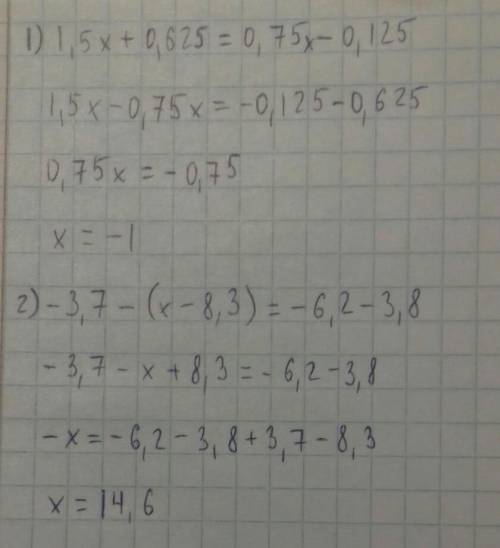 1) 1,5x + 0,625 = 0,75x - 0,125
1,5x - 0,75x = -0,125 - 0,625
0,75x = -0,75
x = -1
2) -3,7 - (x - 8,3) = -6,2 - 3,8
-3,7 - x + 8,3 = -6,2 - 3,8
-x = -6,2 - 3,8 + 3,7 - 8,3
x = 14,6